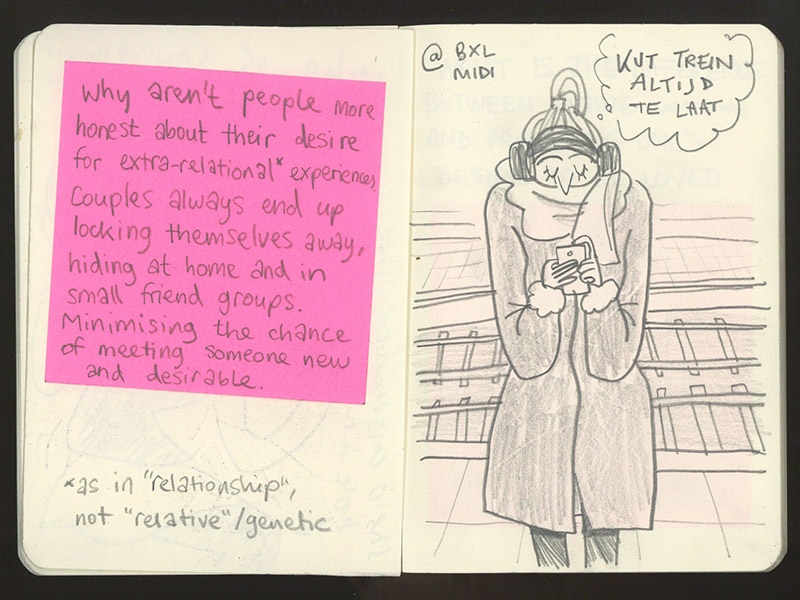 Why aren't people more
honest about their desire
for extra-relational* experiences.
Couples always end up
locking themselves away,
hiding at home and in
small friend groups.
Minimising the chance
of meeting someone new
and desirable.
*as in "relationship",
not "relative"/genetic
@ BXL
MIDI
KUT TREIN
ALTIJD
TE LAAT